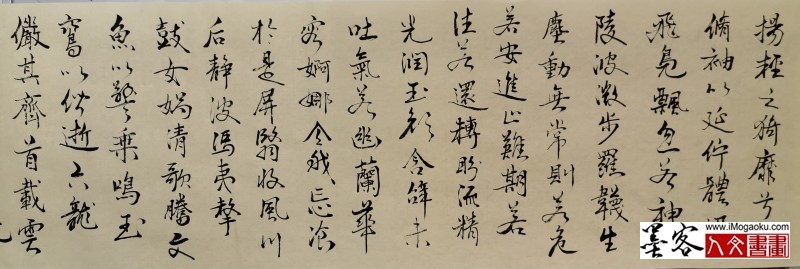 揚輕之猗靡兮
脩袖以延佇體
飛鳧飄忽若神
陵波微步羅韈生
塵動無常則若危
若安進止難期若
往若還轉眄流精
光潤玉顏含辭未
吐氣若幽蘭華
容婀娜令我忘飡
於是屏翳收風川
后靜波馮夷擊
鼓女媧清歌騰文
魚以警乘鳴玉
鸞以偕逝六龍
儼其齊首載雲
墨客
www.iMogaoku.com
人文書畫